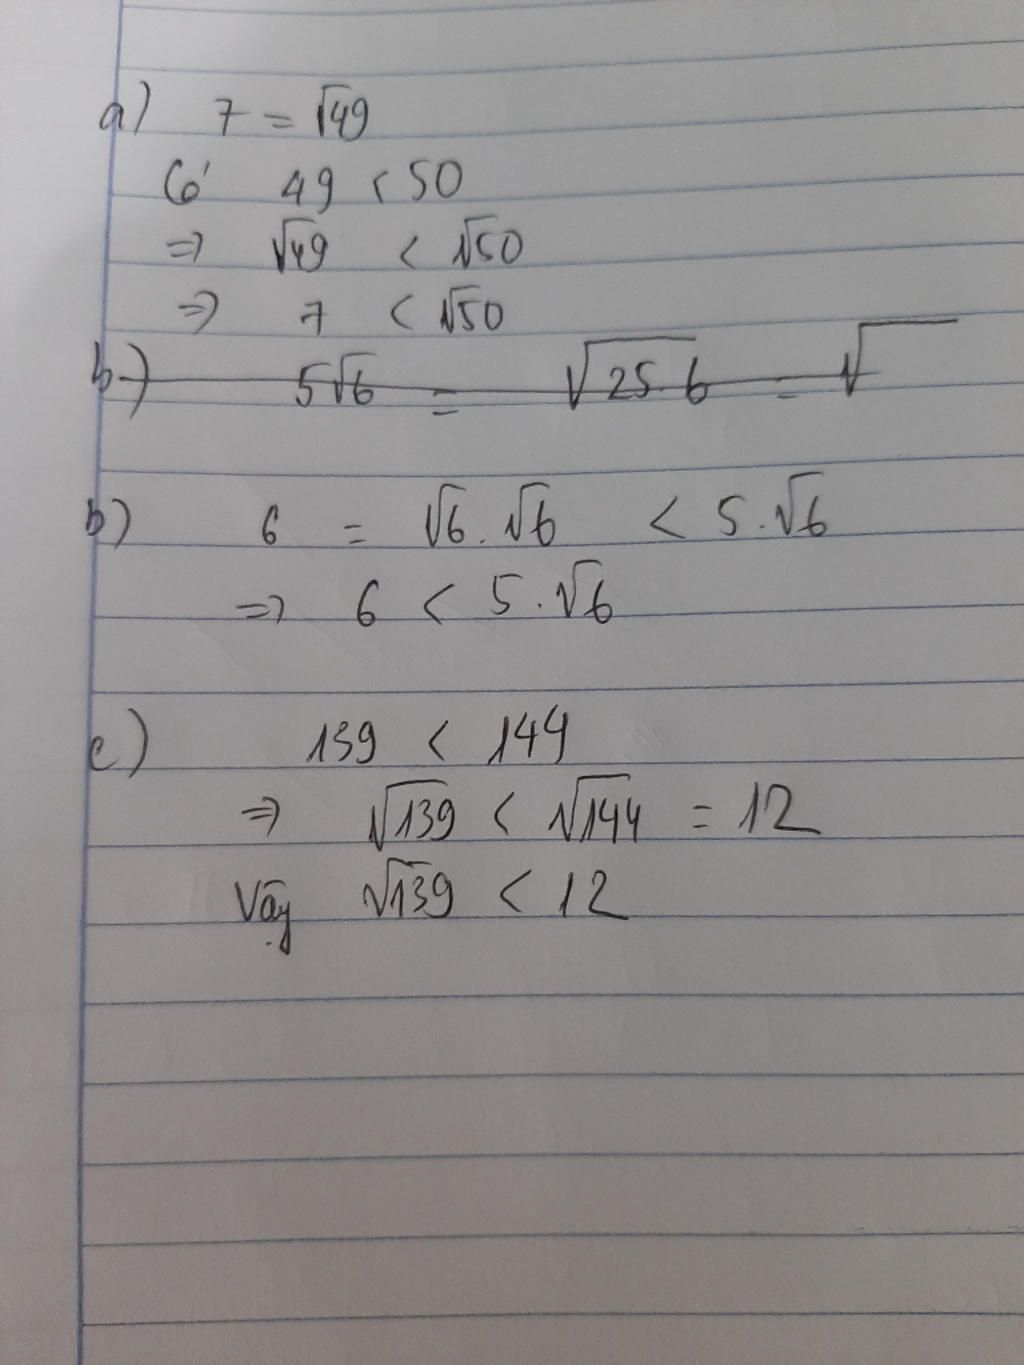 a) 7 = √49
Có 49 < 50
⇒ √49 < √50
⇒ 7 < √50
b) 5√6 = √25.6 = √
b) 6 = √6 . √6 < 5 . √6
⇒ 6 < 5 . √6
c) 139 < 144
⇒ √139 < √144 = 12
Vậy √139 < 12